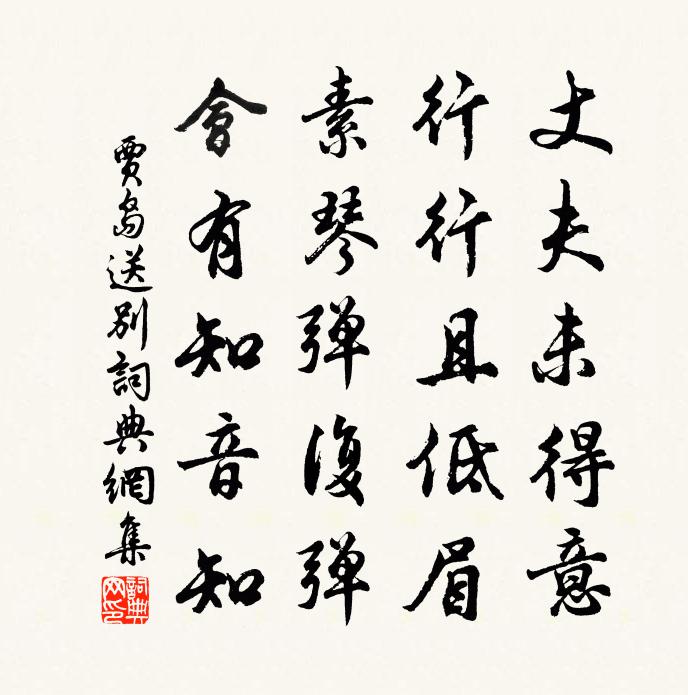 丈夫未得意
行行且低眉
素琴弹復弹
會有知音知
賈島送别詞典網集
詞典網印